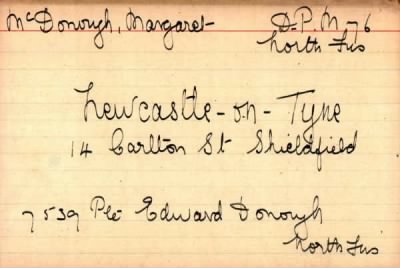 McDonough, Margaret D.P.M 76
North Fus
Newcastle-on-Tyne
14 Carlton St Shieldfield
7539 Pte Edward Donough
North Fus